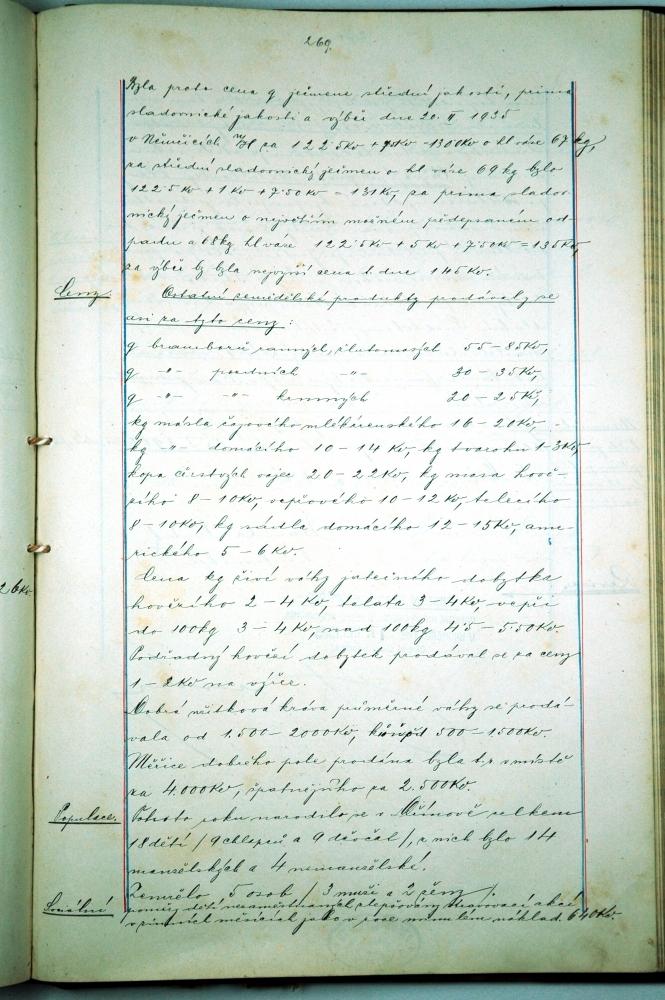 269.
Byla proto cena q ječmene střední jakosti, prima
sladovnické jakosti a výběr dne 20. II 1935
v Němčicích n/H za 122.5Kč + 7.50Kč = 130Kč o hl váze 67 kg,
za střední sladovnický ječmen o hl váze 69 kg bylo
122.5 Kč + 1 Kč + 7.50 Kč = 131Kč, za prima sladov-
nický ječmen o největším možném předepsaném od-
padu a 68kg hl váze 122.5Kč + 5 Kč + 7.50Kč = 135Kč,
za výběr by byla nejvyšší cena t. dne 145Kč.
Ceny. Ostatní zemědělské produkty prodávaly se
asi za tyto ceny:
q bramborů ranných, žlutomasých 55 – 85Kč,
q -"- pozdních -"- 30 – 35Kč,
q -"- -"- krmných 20 – 25Kč,
kg másla čajového mlékárenského 16 – 20Kč,
kg -"- domácího 10 – 14 Kč, kg tvarohu 1–3Kč,
kopa čerstvých vajec 20 – 22Kč, kg masa hově-
zího 8 – 10Kč, vepřového 10 – 12 Kč, telecího
8 – 10Kč, kg sádla domácího 12 – 15Kč, ame-
rického 5 – 6 Kč.
Cena kg živé váhy jatečného dobytka
hovězího 2 – 4 Kč, telata 3 – 4Kč, vepři
do 100kg 3 – 4 Kč, nad 100kg 4.5 – 5.50Kč.
Podřadný hovězí dobytek prodával se za ceny
1 – 2Kč na výše.
Dobrá užitková kráva průměrné váhy se prodá-
vala od 1.500 – 2000Kč, 500 – 1.500Kč.
Měřice dobrého pole prodána byla t. r. v místě
za 4.000Kč, špatnějšího za 2.500Kč.
Populace. Tohoto roku narodilo se v celkem
18 dětí / 9 chlapců a 9 děvčat /, z nich bylo 14
manželských a 4 nemanželské.
Zemřelo 5 osob / 3 muži a 2 ženy /.
Sociální poměry dětí nezaměstnaných zlepšovány stravovací akcí
v zimních měsících jako v roce minulém náklad. 640Kč.
26Kč